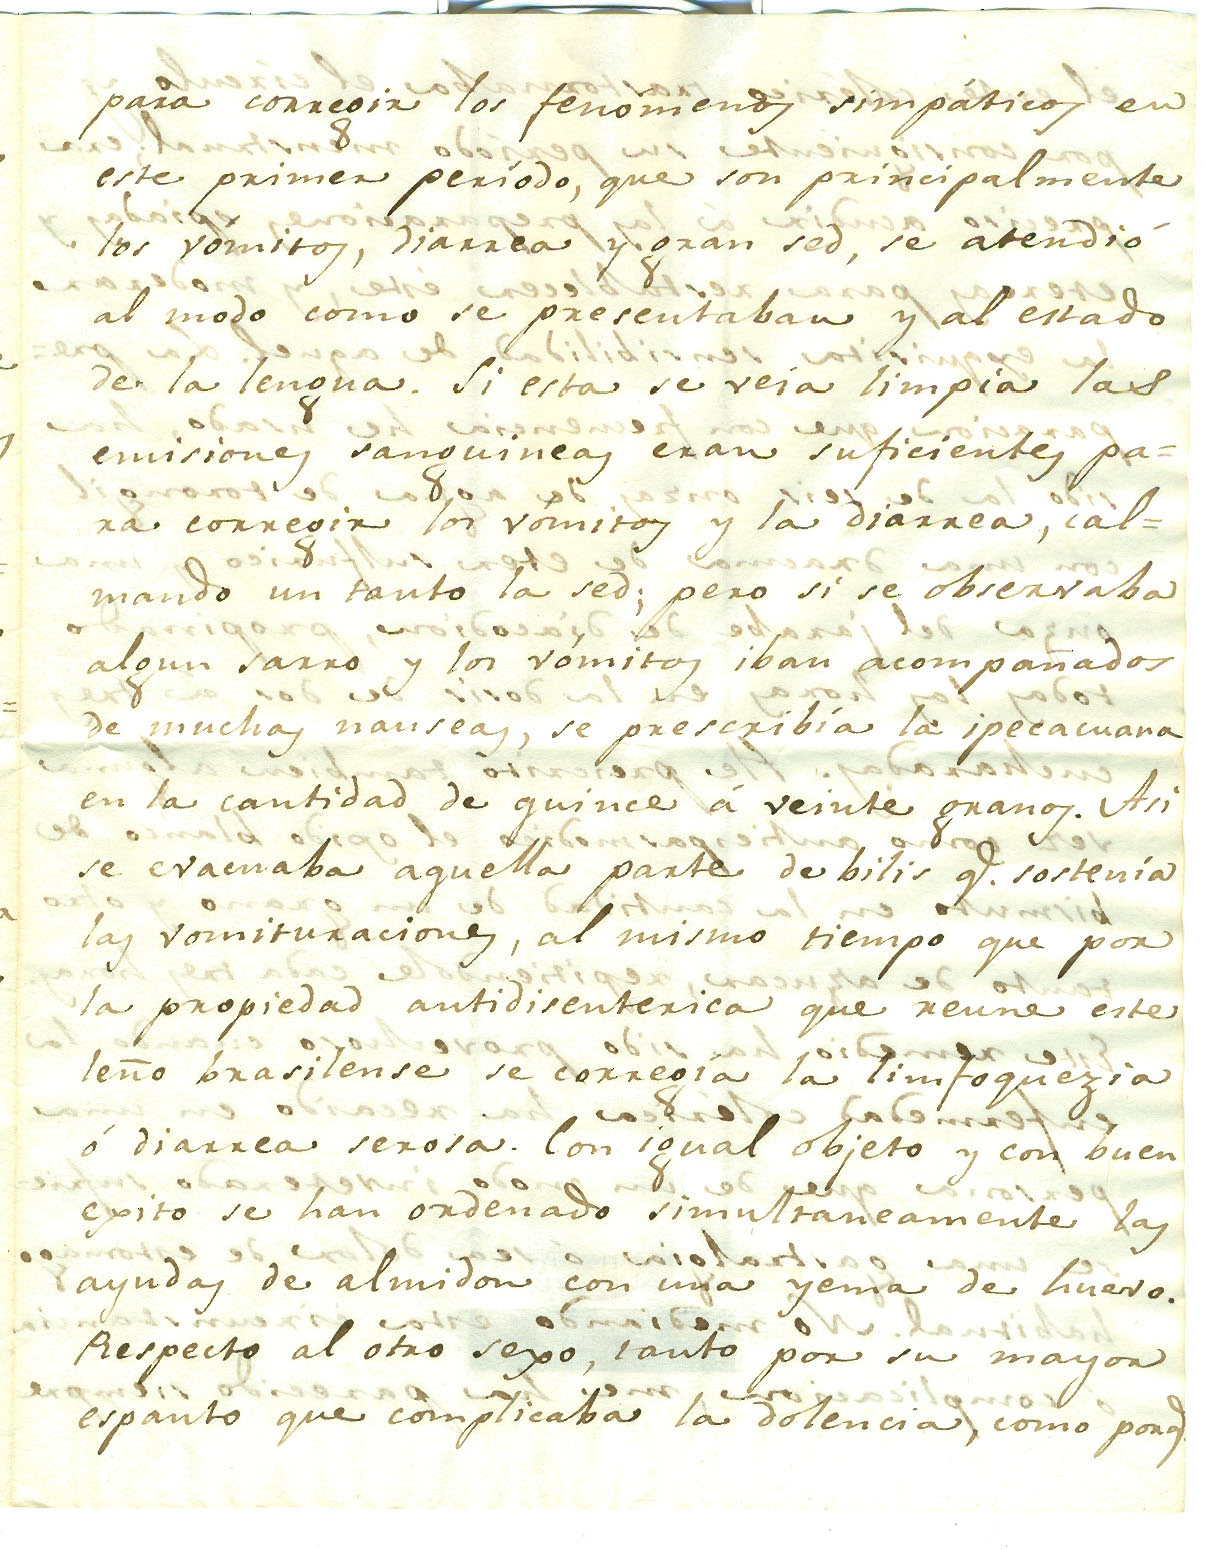 para corregir los fenomenos simpáticos en
este primer período, que son principalmente
los vómitos, diarrea y gran sed, se atendió
al modo como se presentaban y al estado
de la lengua. Si esta se veía limpia las
emisiones sanguineas eran suficientes pa=
ra corregir los vómitos y la diárrea, cal=
mando un tanto la sed; pero si se observaba
algun sarro y los vómitos iban acompañados
de muchas nauseas, se prescribía la ipecacuana
en la cantidad de quince á veinte granos. Asi
se evacuaba aquella parte de bilis q. sostenía
las vomituraciones, al mismo tiempo que por
la propiedad antidisenterica que reune este
leño brasilense se corregía la limfoquezia
ó diarrea serosa. Con igual objeto y con buen
exito se han ordenado simultaneamente las
ayudas de almidon con una yema de huevo.
Respecto al otro sexo, tanto por su mayor
espanto que complicaba la dolencia, como porq